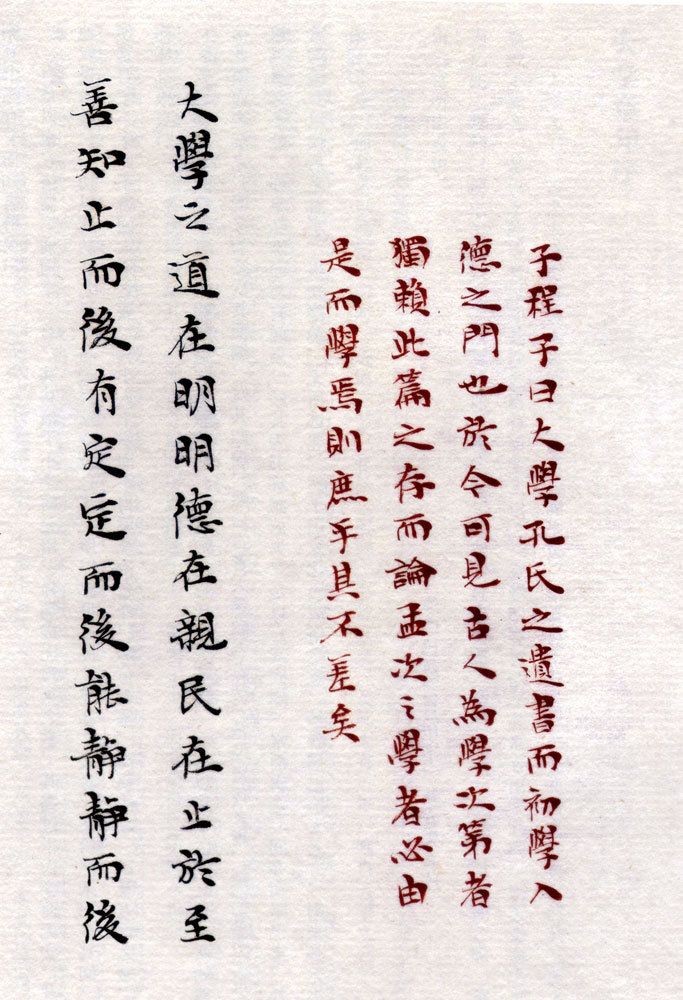 子程子曰大學孔氏之遺書而初學入
德之門也於今可見古人為學次第者
獨賴此篇之存而論孟次之學者必由
是而學焉則庶乎其不差矣
大學之道在明明德在親民在止於至
善知止而後有定定而後能靜靜而後